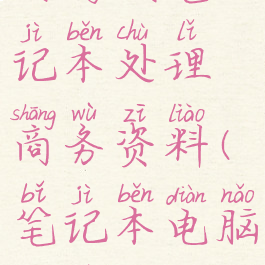 jì běn chù lǐ
记本处理
shāng wù zī liào
商务资料(
bǐ jì běn diàn nǎo
笔记本电脑